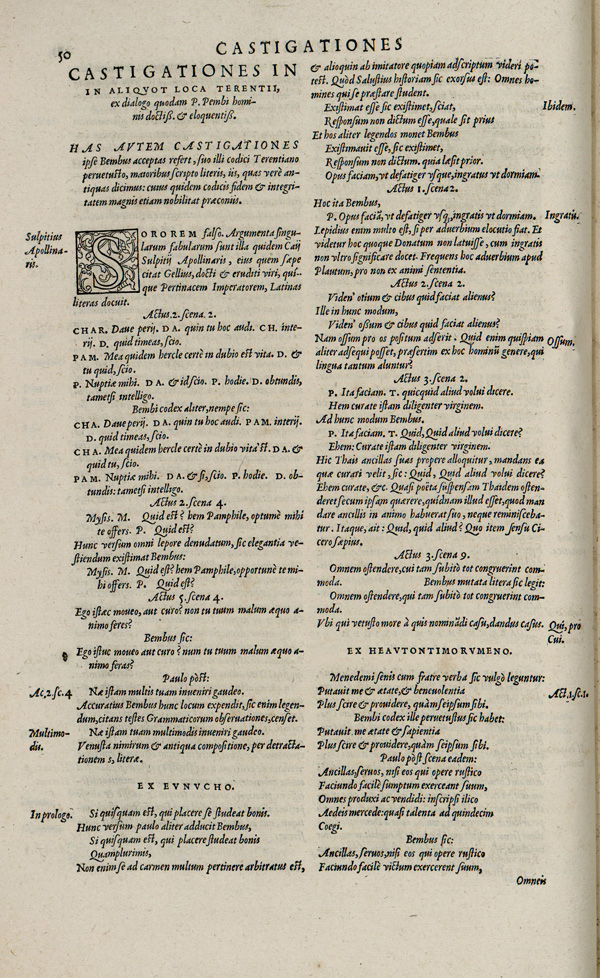 50
CASTIGATIONES
CASTIGATIONES IN
IN ALIQVOT LOCA TERENTII,
ex dialogo quodam P. Pembi homi-
nis doctiß. & eloquentiß.
HAS AVTEM CASTIGATIONES
ipse Bembus acceptas refert, suo illi codici Terentiano
peruetusto, maioribus scripto literis, iis, quas verè an-
tiquas dicimus: cuius quidem codicis fidem & integri-
tatem magnis etiam nobilitat præconiis.
Sulpitius
Apollina-
ris.
SOROREM falso. Argumenta singu-
larum fabularum sunt illa quidem Caij
Sulpitij Apollinaris, eius quem sæpe
citat Gellius, docti & eruditi viri, quí-
que Pertinacem Imperatorem, Latinas
literas docuit.
Actus.2. Scena.2.
CHAR. Daue perij. DA. quin tu hoc audi. CH. inte-
rij. D. quid timeas, scio.
PAM. Mea quidem hercle certè in dubio est vita. D. &
tu quid, scio.
P. Nuptiæ mihi. DA. & id scio. P. hodie. D. obtundis,
tametsi intelligo.
Bembi codex aliter, nempe sic:
CHA. Daue perij. DA. quin tu hoc audi. PAM. interij.
D. quid timeas, scio.
CHA. Mea quidem hercle certè in dubio vita'st. DA. &
quid tu, scio.
PAM. Nuptiæ mihi. DA. & si, scio. P. hodie. D. ob-
tundis: tametsi intelligo.
Actus 2. scena 4.
Mysis. M. Quid est? hem Pamphile, optumè mihi
te offers. P. Quid est?
Hunc versum omni lepore denudatum, sic elegantia ve-
stiendum existimat Bembus:
Mysis. M. Quid est? hem Pamphile, opportunè te mi-
hi offers. P. Quid est?
Actus 5. scena 4.
Ego istæc moueo, aut curo? non tu tuum malum æquo a-
nimo feres?
Bembus sic:
Ego istuc moueo aut curo? num tu tuum malum æquo a-
nimo feras?
Paulo pòst:
Ac.2.sc.4
Næ istam multis tuam inueniri gaudeo.
Accuratius Bembus hunc locum expendit, sic enim legen-
dum, citans testes Grammaticorum obseruationes, censet.
Multimo-
dis.
Næ istam tuam multimodis inueniri gaudeo.
Venusta nimirum & antiqua compositione, per detracta-
tionem s, literæ.
EX EVNVCHO.
In prologo.
Si quisquam est, qui placere se studeat bonis.
Hunc versum paulo aliter adducit Bembus,
Si quisquam est, qui placere studeat bonis
Quamplurimis,
Non enim se ad carmen multum pertinere arbitratus est,
& alioquin ab imitatore quopiam adscriptum videri po-
test. Quòd Salustius historiam sic exorsus est: Omnes ho-
mines qui se præstare student.
Existimat esse sic existimet, sciat,
Ibidem.
Responsum non dictum esse, quale sit prius
Et hos aliter legendos monet Bembus
Existimauit esse, sic existimet,
Responsum non dictum. quia læsit prior.
Opus faciam, vt defatiger vsque, ingratus vt dormiam.
Actus 1. scena 2.
Hoc ita Bembus,
P. Opus faciā, vt defatiger vsq;, ingratis vt dormiam.
Ingratis.
Lepidius enim multo est, si per aduerbium elocutio fiat. Et
videtur hoc quoque Donatum non latuisse, cum ingratis
non vltro significare docet. Frequens hoc aduerbium apud
Plautum, pro non ex animi sententia.
Actus 2. scena 2.
Viden' otium & cibus quid faciat alienus?
Ille in hunc modum,
Viden' ossum & cibus quid faciat alienus?
Nam ossum pro os positum adserit. Quid enim quispiam
Ossum.
aliter adsequi posset, præsertim ex hoc hominū genere, qui
lingua tantum aluntur?
Actus 3. scena 2.
P. Ita faciam. T. quicquid aliud volui dicere.
Hem curate istam diligenter virginem.
Ad hunc modum Bembus.
P. Ita faciam. T. Quid, Quid aliud volui dicere?
Ehem: Curate istam diligenter virginem.
Hic Thais ancillas suas propere alloquitur, mandans ea
quæ curari velit, sic: Quid, Quid aliud volui dicere?
Ehem curate, &c. Quasi poëta suspensam Thaidem osten-
deret secum ipsam quærere, quidnam illud esset, quod man
dare ancillis in animo habuerat suo, neque reminisceba-
tur. Itaque, ait: Quid, quid aliud? Quo item sensu Ci-
cero sæpius.
Actus 3. scena 9.
Omnem ostendere, cui tam subitò tot congruerint com-
moda. Bembus mutata litera sic legit:
Omnem ostendere, qui tam subitò tot congruerint com-
moda.
Vbi qui vetusto more à quis nominādi casu, dandus casus.
Qui, pro
Cui.
EX HEAVTONTIMORVMENO.
Menedemi senis cum fratre verba sic vulgò leguntur:
Putauit me & ætate, & beneuolentia
Act.1.sc.1.
Plus scire & prouidere, quàm seipsum sibi.
Bembi codex ille peruetustus sic habet:
Putauit me ætate & sapientia
Plus scire & prouidere, quàm seipsum sibi.
Paulo pòst scena eadem:
Ancillas, seruos, nisi eos qui opere rustico
Faciundo facilè sumptum exercerent suum,
Omnes produxi ac vendidi: inscripsi ilico
Aedeis mercede: quasi talenta ad quindecim
Coegi.
Bembus sic:
Ancillas, seruos, nisi eos qui opere rustico
Faciundo facilè victum exercerent suum,
Omneis